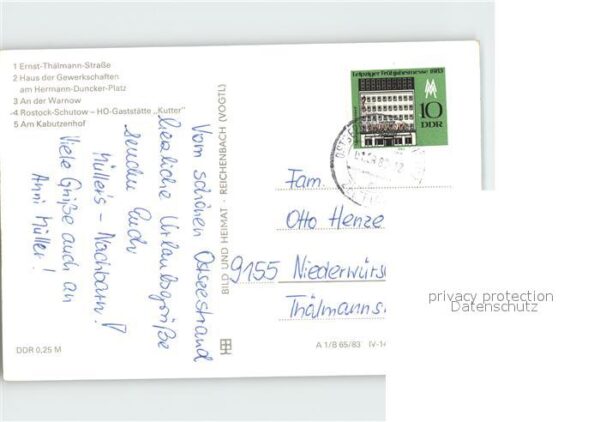 1 Ernst-Thälmann-Straße
2 Haus der Gewerkschaften
am Hermann-Duncker-Platz
3 An der Warnow
4 Rostock-Schutow – HO-Gaststätte „Kutter"
5 Am Kabutzenhof
Vom schönen Ostseestrand
herzliche Urlaubsgrüße
senden Euch
Müller's – Nachbarn!
Viele Grüße auch an
Anni Müller!
DDR 0,25 M
BILD UND HEIMAT · REICHENBACH (VOGTL)
Leipziger Frühjahrsmesse 1983
10
DDR
Fam.
Otto Henze
9155 Niederwürs
Thälmanns
A 1/B 65/83 IV-14
privacy protection
Datenschutz